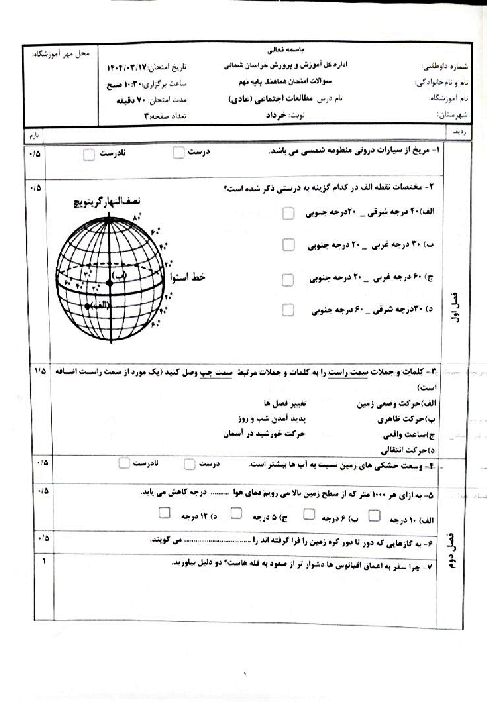 باسمه تعالی
اداره کل آموزش و پرورش خراسان شمالی
سوالات امتحان هماهنگ پایه نهم
نام درس: مطالعات اجتماعی (عادی)
نوبت: خرداد
شماره داوطلبی:
نام و نام خانوادگی:
نام آموزشگاه:
شهرستان:
تاریخ امتحان: ۱۴۰۲/۰۳/۱۷
ساعت برگزاری: ۱۰:۳۰ صبح
مدت امتحان: ۷۰ دقیقه
تعداد صفحه: ۳
محل مهر آموزشگاه:
ردیف
بارم
فصل اول
۱- مریخ از سیارات درونی منظومه شمسی می باشد. درست نادرست
۰/۵
۲- مختصات نقطه الف در کدام گزینه به درستی ذکر شده است؟
۰/۵
الف) ۲۰ درجه شرقی _ ۲۰درجه جنوبی
ب) ۳۰ درجه غربی _ ۲۰ درجه جنوبی
ج) ۶۰ درجه غربی _ ۲۰ درجه جنوبی
د) ۳۰درجه شرقی _ ۶۰ درجه جنوبی
نصف النهار گرینویچ
خط استوا
(ب)
(الف)
۳- کلمات و جملات سمت راست را به کلمات و جملات مرتبط سمت چپ وصل کنید (یک مورد از سمت راست اضافه
است)
۱/۵
الف)حرکت وضعی زمین تغییر فصل ها
ب)حرکت ظاهری پدید آمدن شب و روز
ج)ساعت واقعی حرکت خورشید در آسمان
د)حرکت انتقالی
فصل دوم
۴- وسعت خشکی های زمین نسبت به آب ها بیشتر است. درست نادرست
۰/۵
۵- به ازای هر ۱۰۰۰ متر که از سطح زمین بالا می رویم دمای هوا ......... درجه کاهش می یابد.
۰/۵
الف) ۱۰ درجه ب) ۶ درجه ج) ۵ درجه د) ۱۲ درجه
۶- به گازهایی که دور تا دور کره زمین را فرا گرفته اند را .............................. می گویند.
۰/۵
۷- چرا سفر به اعماق اقیانوس ها دشوار تر از صعود به قله هاست؟ دو دلیل بیاورید.
۱
۱